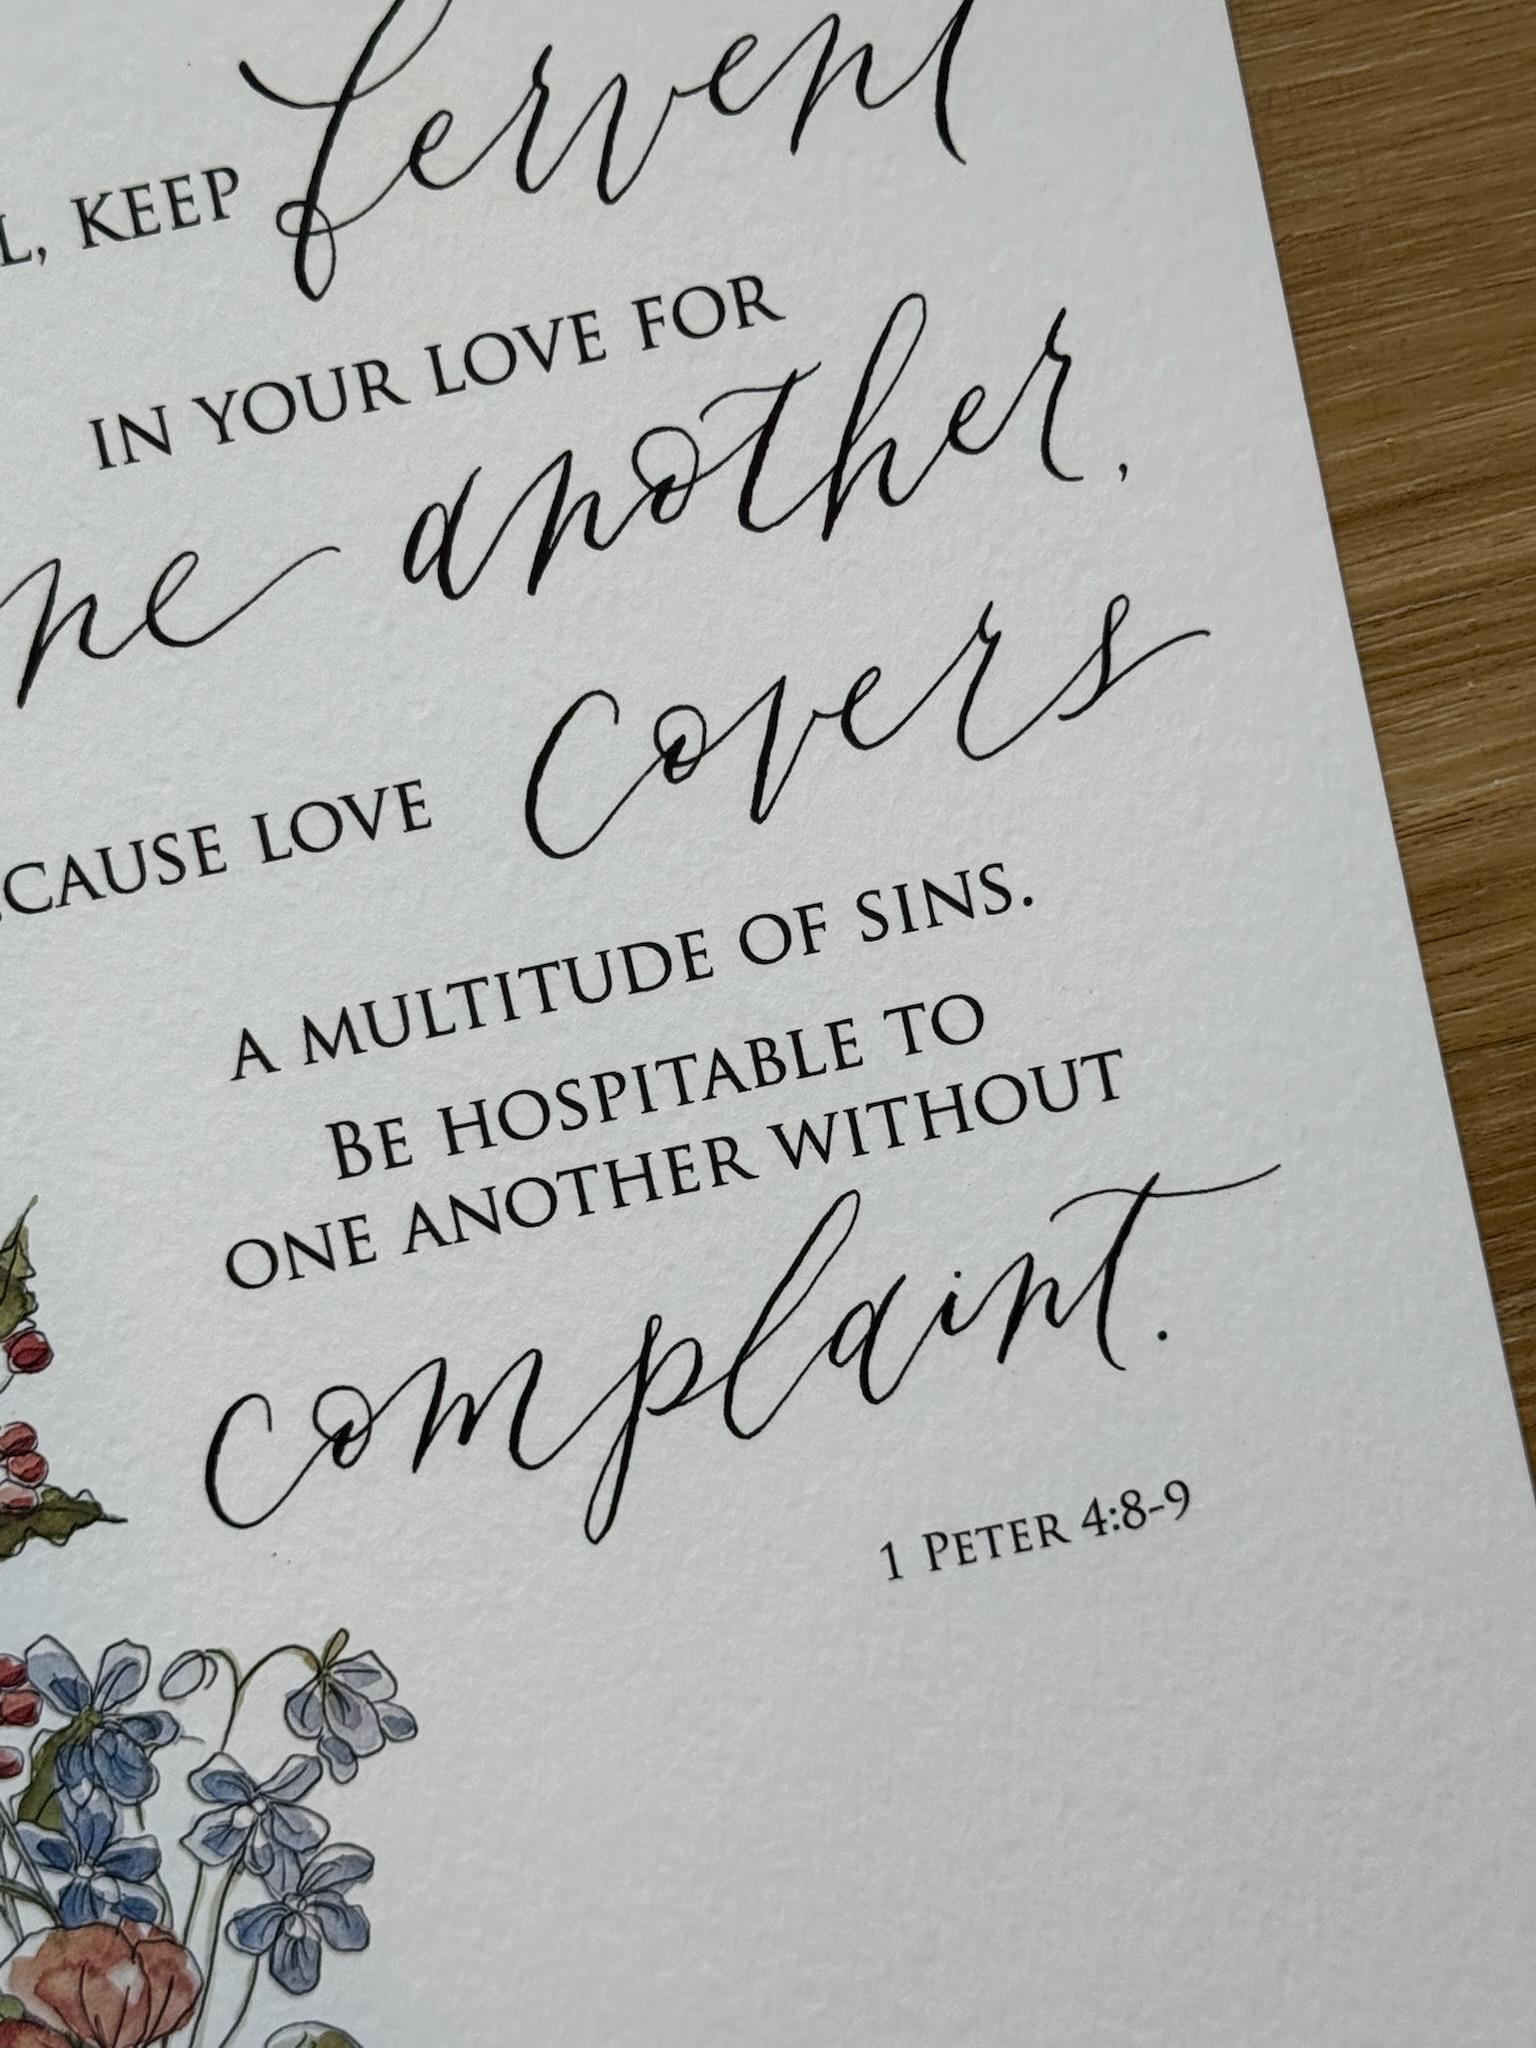 L, KEEP fervent
IN YOUR LOVE FOR
ne another,
CAUSE LOVE covers
A MULTITUDE OF SINS.
BE HOSPITABLE TO
ONE ANOTHER WITHOUT
complaint.
1 PETER 4:8-9